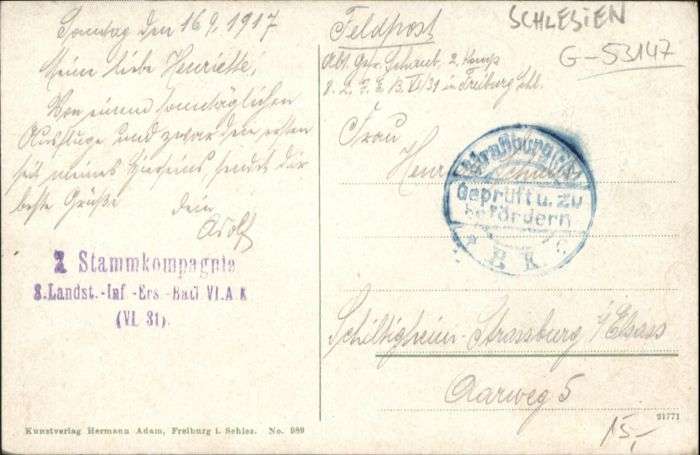 Sonntag den 16.9.1917
Meine liebe Henriette,
Von einem sonntäglichen
Ausfluge, und zwar den ersten
seit meines Hierseins sendet dir
beste Grüße
dein
Adolf
2 Stammkompagnie
8.Landst.-Inf.-Ers.-Batl VI.A.K
(VI. 31).
Kunstverlag Hermann Adam, Freiburg i. Schles. No. 989
SCHLESIEN
G-53147
Feldpost
Abs. Gefr. Schaub, 2. Komp
8. L. I. E. B. VI/31 in Freiburg Schl.
Frau
Straßburg (Els)
Geprüft u. zu
befördern
* B. K.
Schiltigheim-Strassburg i/Elsass
Aarweg 5
21771
15,-